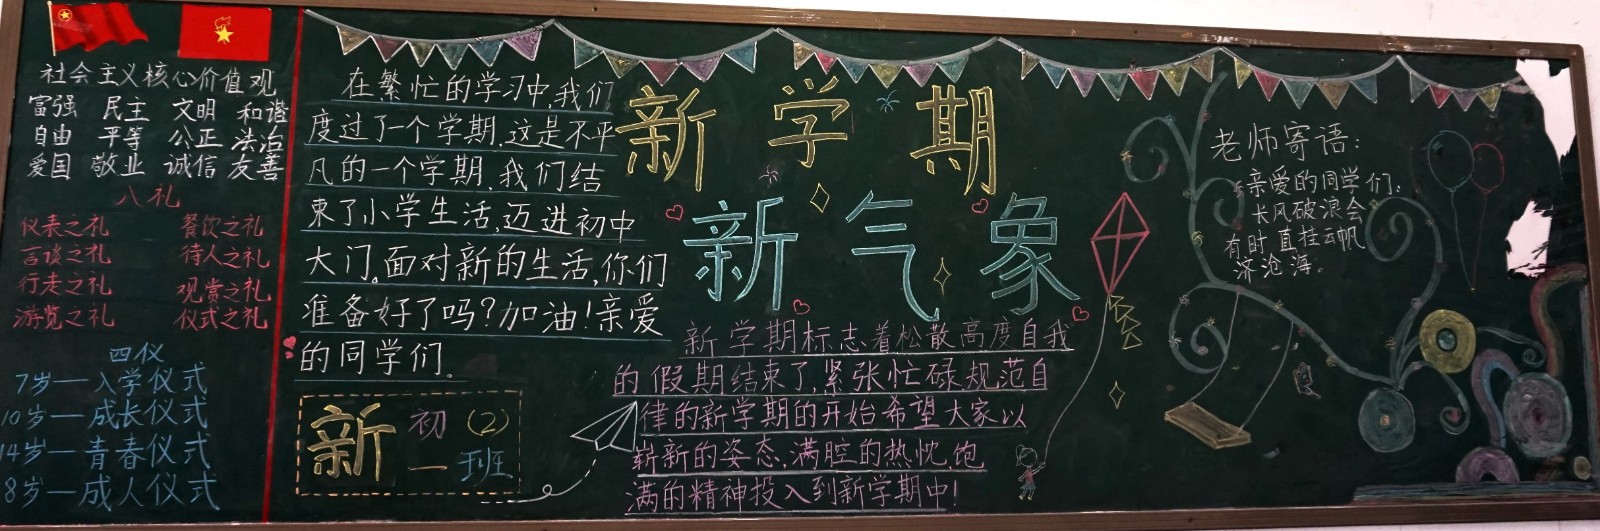 社会主义核心价值观
富强 民主 文明 和谐
自由 平等 公正 法治
爱国 敬业 诚信 友善
八礼
仪表之礼 餐饮之礼
言谈之礼 待人之礼
行走之礼 观赏之礼
游览之礼 仪式之礼
四仪
7岁—入学仪式
10岁—成长仪式
14岁—青春仪式
8岁—成人仪式
在繁忙的学习中,我们
度过了一个学期,这是不平
凡的一个学期,我们结
束了小学生活,迈进初中
大门。面对新的生活,你们
准备好了吗?加油!亲爱
的同学们。
新 初一 (2)班
新学期
新气象
新学期标志着松散高度自我
的假期结束了,紧张忙碌规范自
律的新学期的开始希望大家以
崭新的姿态,满腔的热忱,饱
满的精神投入到新学期中!
老师寄语:
亲爱的同学们:
长风破浪会
有时,直挂云帆
济沧海。